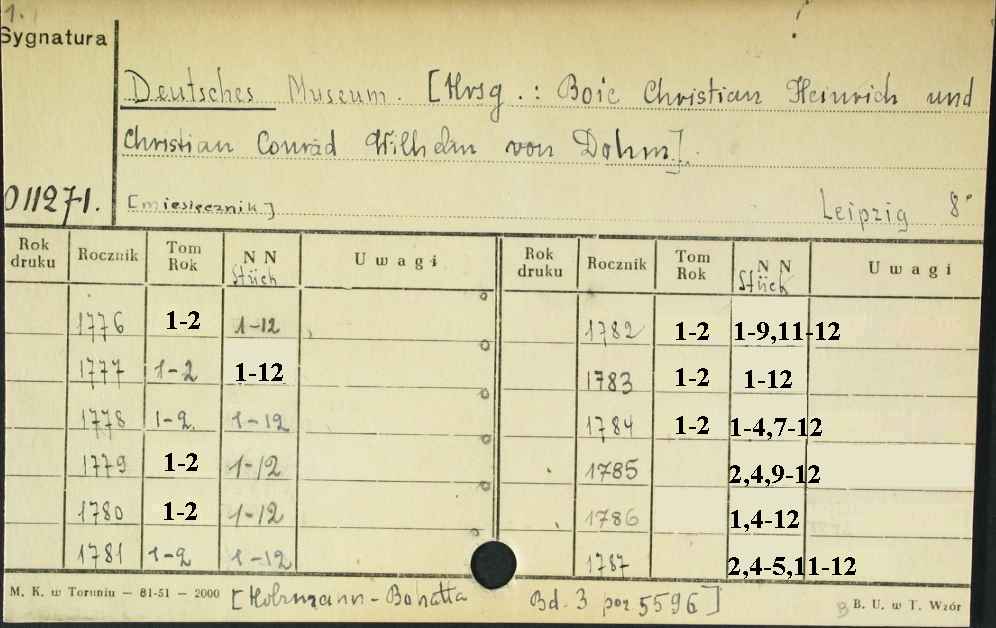 1.
Sygnatura
Deutsches Museum. [Hrsg.: Boie Christian Heinrich und
Christian Conrad Wilhelm von Dohm].
011271.
[miesięcznik] Leipzig 8°
Rok druku Rocznik Tom Rok N N Stück Uwagi Rok druku Rocznik Tom Rok N N Stück Uwagi
1776 1-2 1-12 1782 1-2 1-9,11-12
1777 1-2 1-12 1783 1-2 1-12
1778 1-2. 1-12 1784 1-2 1-4,7-12
1779 1-2 1-12 1785 2,4,9-12
1780 1-2 1-12 1786 1,4-12
1781 1-2 1-12 1787 2,4-5,11-12
M. K. w Toruniu — 81-51 — 2000 [Holzmann-Bohatta Bd. 3 poz 5596] B. U. w T. Wzór